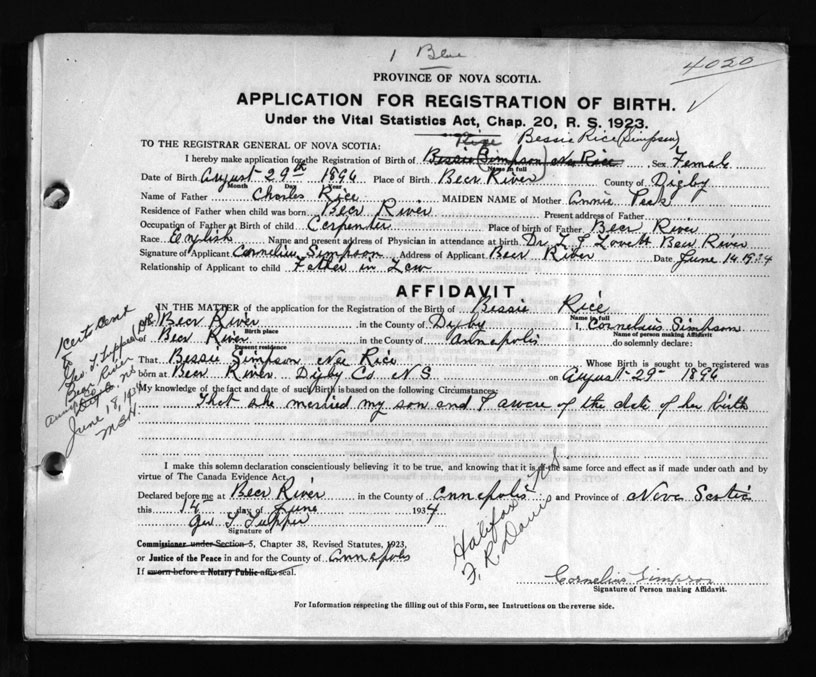 1 Blue
4020
PROVINCE OF NOVA SCOTIA.
APPLICATION FOR REGISTRATION OF BIRTH.
Under the Vital Statistics Act, Chap. 20, R. S. 1923.
Rice Bessie Rice (Simpson)
TO THE REGISTRAR GENERAL OF NOVA SCOTIA:
I hereby make application for the Registration of Birth of Bessie Simpson nee Rice Sex Female
Name in full
Date of Birth August 29th 1896 Place of Birth Bear River County of Digby
Month Day Year
Name of Father Charles Rice MAIDEN NAME of Mother Annie Peck
Residence of Father when child was born Bear River Present address of Father
Occupation of Father at Birth of child Carpenter Place of birth of Father Bear River
Race English Name and present address of Physician in attendance at birth Dr. L. J. Lovett Bear River
Signature of Applicant Cornelius Simpson Address of Applicant Bear River Date June 14 1934
Relationship of Applicant to child Father in Law
AFFIDAVIT
IN THE MATTER of the application for the Registration of the Birth of Bessie Rice
Name in full
Bear River in the County of Digby I, Cornelius Simpson
Birth place Name of person making Affidavit
of Bear River in the County of Annapolis do solemnly declare:
Present residence
That Bessie Simpson Nee Rice Whose Birth is sought to be registered was
born at Bear River Digby Co N S on August 29 1896
My knowledge of the fact and date of such Birth is based on the following Circumstances:
That she married my son and I aware of the date of her birth
Cert sent
to
Geo. T. Tupper (D.R.)
Bear River
Annapolis
Digby N.S.
June 18, 1934
M.B.H.
I make this solemn declaration conscientiously believing it to be true, and knowing that it is of the same force and effect as if made under oath and by
virtue of The Canada Evidence Act.
Declared before me at Bear River in the County of Annapolis and Province of Nova Scotia
this 14 day of June 1934
Geo. T. Tupper
Signature of
Commissioner under Section 5, Chapter 38, Revised Statutes, 1923,
or Justice of the Peace in and for the County of Annapolis
If sworn before a Notary Public affix seal.
Halifax N.S.
F. R. Davis
Cornelius Simpson
Signature of Person making Affidavit.
For Information respecting the filling out of this Form, see Instructions on the reverse side.